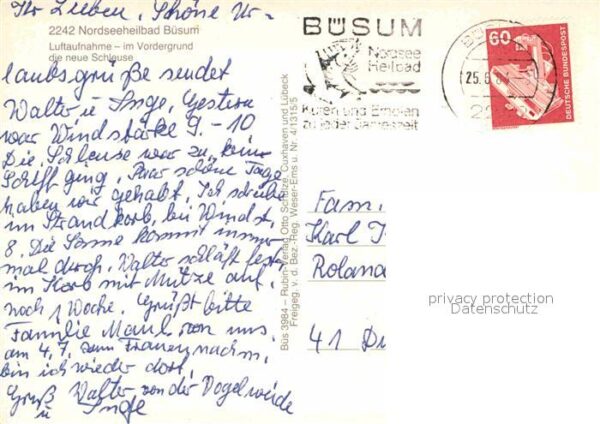 Ihr Lieben, Schöne Ur-
2242 Nordseeheilbad Büsum
Luftaufnahme – im Vordergrund
die neue Schleuse
laubsgrüße sendet
Walter u Inge, Gestern
war Windstärke 9 - 10
Die Schleuse war zu, kein
Schiff ging. Paar schöne Tage
haben wir gehabt. Ich schreibe
im Strandkorb, bei Windst.
8. Die Sonne kommt immer
mal durch. Walter schläft fest
im Korb mit Mütze auf.
noch 1 Woche. Grüßt bitte
Familie Maul von uns.
am 4.7. zum Frauennachm.
bin ich wieder dort.
Gruß Walter von der Vogelweide
u Inge
Büs 3984 – Rubin-Verlag Otto Schütze, Cuxhaven und Lübeck
Freigeg. v. d. Bez.-Reg. Weser-Ems u. Nr. 4/1315-5
BÜSUM
Nordsee
Heilbad
Kuren und Erholen
zu jeder Jahreszeit
25.6.
60
DEUTSCHE BUNDESPOST
Fam.
Karl
Roland
41
privacy protection
Datenschutz